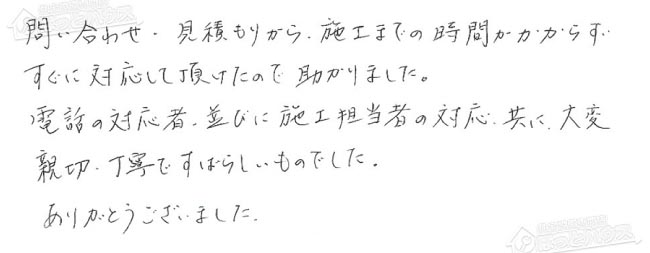 問い合わせ・見積もりから、施工までの時間がかからず
すぐに対応して頂けたので助かりました。
電話の対応者、並びに施工担当者の対応、共に、大変
親切、丁寧ですばらしいものでした。
ありがとうございました。